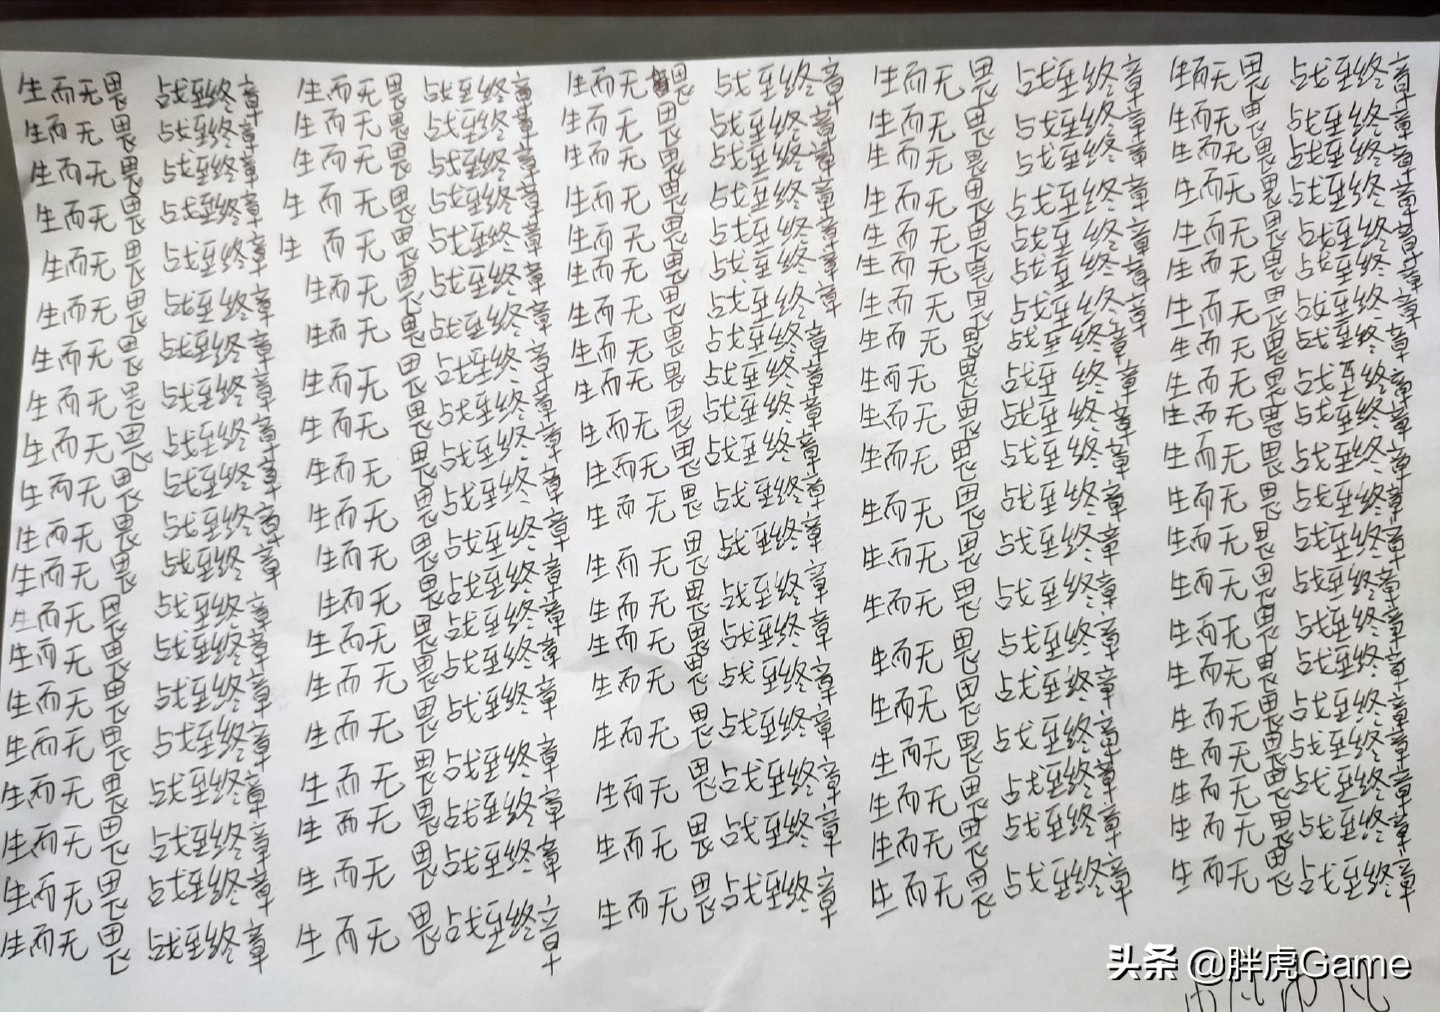 生而无畏 战至终章 生而无畏 战至终章 生而无畏 战至终章 生而无畏 战至终章 生而无畏 战至终章
生而无畏 战至终章 生而无畏 战至终章 生而无畏 战至终章 生而无畏 战至终章 生而无畏 战至终章
生而无畏 战至终章 生而无畏 战至终章 生而无畏 战至终章 生而无畏 战至终章 生而无畏 战至终章
生而无畏 战至终章 生而无畏 战至终章 生而无畏 战至终章 生而无畏 战至终章 生而无畏 战至终章
生而无畏 战至终章 生而无畏 战至终章 生而无畏 战至终章 生而无畏 战至终章 生而无畏 战至终章
生而无畏 战至终章 生而无畏 战至终章 生而无畏 战至终章 生而无畏 战至终章 生而无畏 战至终章
生而无畏 战至终章 生而无畏 战至终章 生而无畏 战至终章 生而无畏 战至终章 生而无畏 战至终章
生而无畏 战至终章 生而无畏 战至终章 生而无畏 战至终章 生而无畏 战至终章 生而无畏 战至终章
生而无畏 战至终章 生而无畏 战至终章 生而无畏 战至终章 生而无畏 战至终章 生而无畏 战至终章
生而无畏 战至终章 生而无畏 战至终章 生而无畏 战至终章 生而无畏 战至终章 生而无畏 战至终章
生而无畏 战至终章 生而无畏 战至终章 生而无畏 战至终章 生而无畏 战至终章 生而无畏 战至终章
生而无畏 战至终章 生而无畏 战至终章 生而无畏 战至终章 生而无畏 战至终章 生而无畏 战至终章
生而无畏 战至终章 生而无畏 战至终章 生而无畏 战至终章 生而无畏 战至终章 生而无畏 战至终章
生而无畏 战至终章 生而无畏 战至终章 生而无畏 战至终章 生而无畏 战至终章 生而无畏 战至终章
生而无畏 战至终章 生而无畏 战至终章 生而无畏 战至终章 生而无畏 战至终章 生而无畏 战至终章
生而无畏 战至终章 生而无畏 战至终章 生而无畏 战至终章 生而无畏 战至终章 生而无畏 战至终章
生而无畏 战至终章 生而无畏 战至终章 生而无畏 战至终章 生而无畏 战至终章 生而无畏 战至终章
生而无畏 战至终章 生而无畏 战至终章 生而无畏 战至终章 生而无畏 战至终章 生而无畏 战至终章
生而无畏 战至终章 生而无畏 战至终章 生而无畏 战至终章 生而无畏 战至终章 生而无畏 战至终章
生而无畏 战至终章 生而无畏 战至终章 生而无畏 战至终章 生而无畏 战至终章 生而无畏 战至终章
生而无畏 战至终章
头条 @胖虎Game